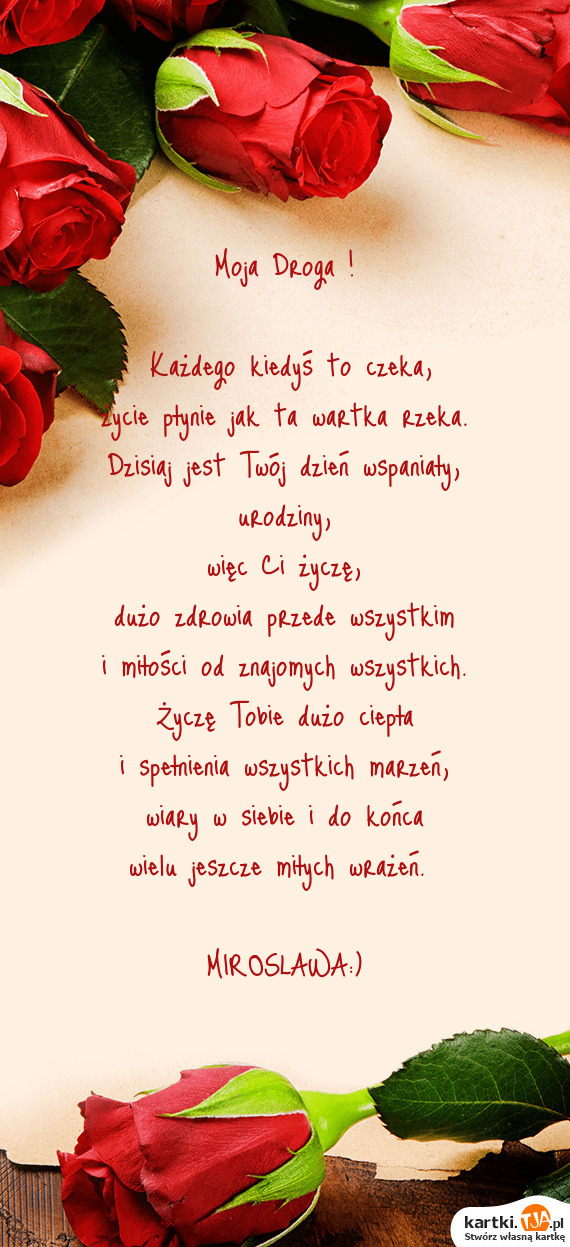 Moja Droga !
Każdego kiedyś to czeka,
życie płynie jak ta wartka rzeka.
Dzisiaj jest Twój dzień wspaniały,
urodziny,
więc Ci życzę,
dużo zdrowia przede wszystkim
i miłości od znajomych wszystkich.
Życzę Tobie dużo ciepła
i spełnienia wszystkich marzeń,
wiary w siebie i do końca
wielu jeszcze miłych wrażeń.
MIROSLAWA:)
kartki.TJA.pl
Stwórz własną kartkę